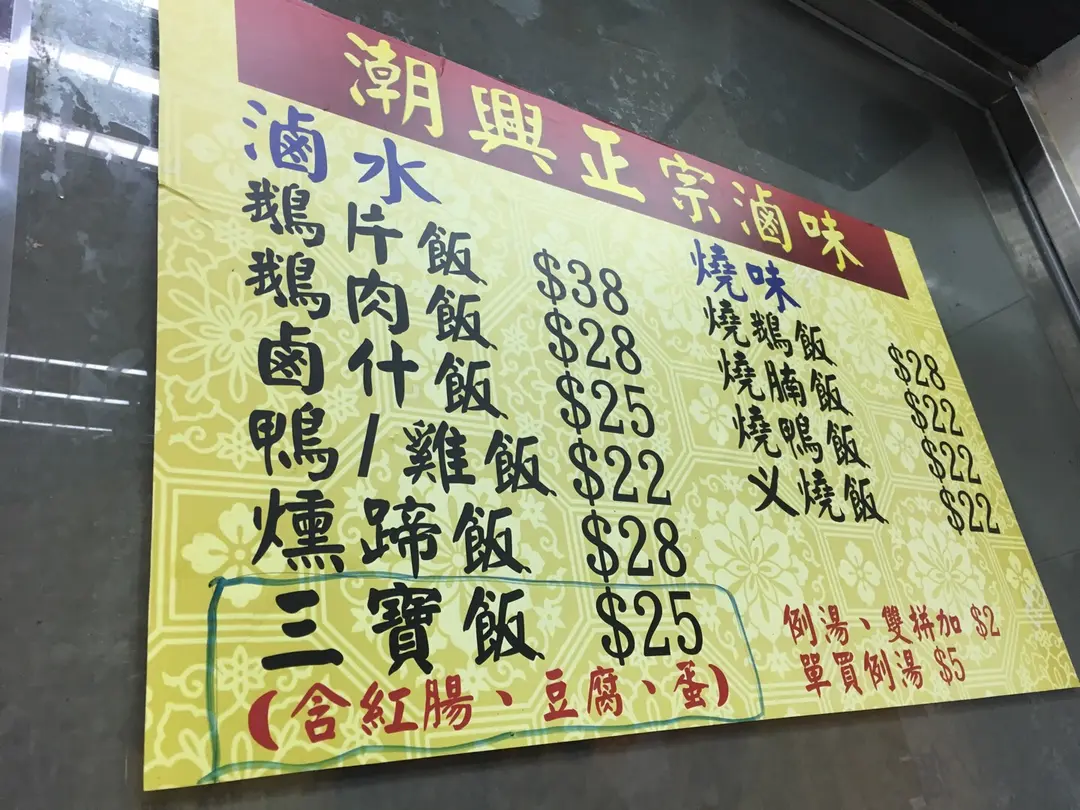 潮興正宗滷味
滷水
鵝片飯 $38
鵝肉飯 $28
鹵什飯 $25
鴨/雞飯 $22
燻蹄飯 $28
三寶飯 $25
(含紅腸、豆腐、蛋)
燒味
燒鵝飯 $28
燒腩飯 $22
燒鴨飯 $22
义燒飯 $22
例湯、雙拼加 $2
單買例湯 $5